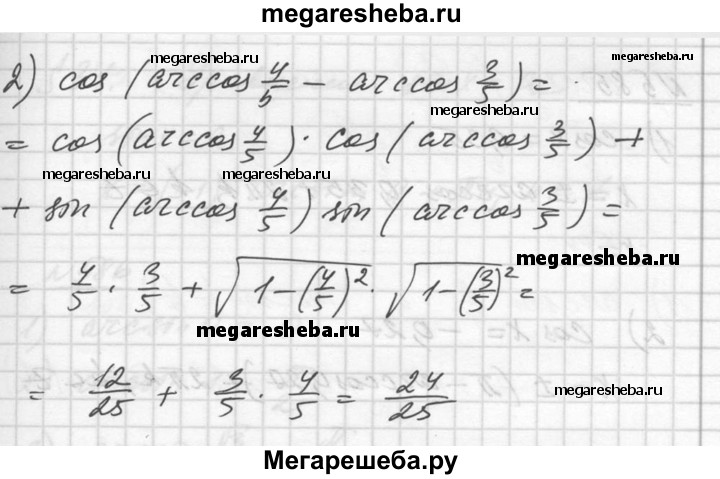 megaresheba.ru
megaresheba.ru
megaresheba.ru
2) cos (arccos 4/5 − arccos 3/5) =
megaresheba.ru
= cos (arccos 4/5) · cos (arccos 3/5) +
megaresheba.ru megaresheba.ru
+ sin (arccos 4/5) sin (arccos 3/5) =
megaresheba.ru
= 4/5 · 3/5 + √(1 − (4/5)²) · √(1 − (3/5)²) =
megaresheba.ru
= 12/25 + 3/5 · 4/5 = 24/25
megaresheba.ru
Мегарешеба.ру